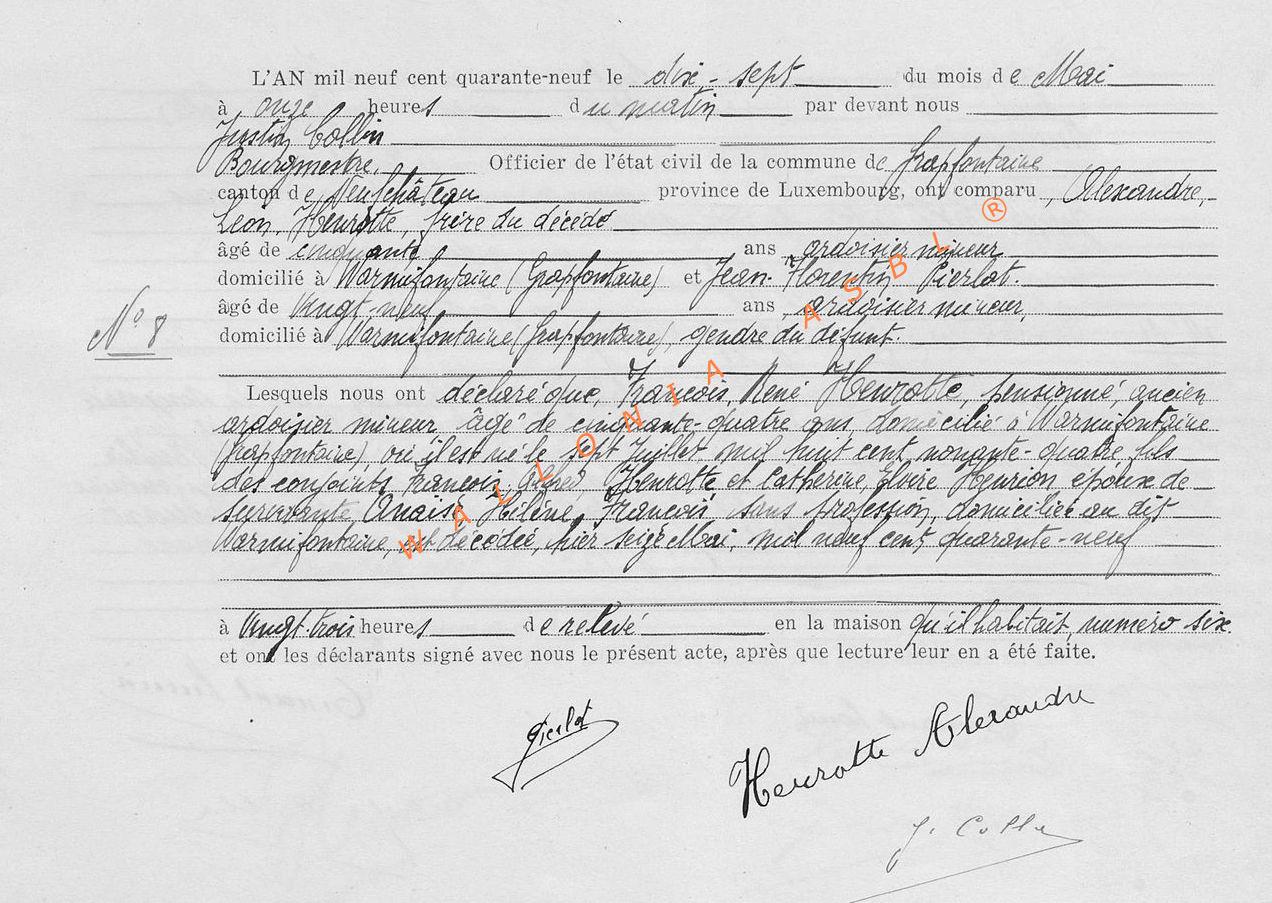 L'AN mil neuf cent quarante-neuf le dix-sept du mois de Mai
à onze heures du matin par devant nous
Justin Collin
Bourgmestre, Officier de l'état civil de la commune de Grapfontaine
canton de Neufchâteau province de Luxembourg, ont comparu, Alexandre,
Léon, Henrotte, frère du décédé
âgé de cinquante ans ardoisier mineur
domicilié à Warmifontaine (Grapfontaine) et Jean-Florentin Pierlot.
âgé de vingt-neuf ans, ardoisier mineur,
N° 8
domicilié à Warmifontaine (Grapfontaine), gendre du défunt.
Lesquels nous ont déclaré que, François, René Henrotte, pensionné, ancien
ardoisier mineur âgé de cinquante-quatre ans, domicilié à Warmifontaine
(Grapfontaine), où il est né le sept Juillet mil huit cent nonante-quatre fils
des conjoints François, Henrotte et Catherine, Henrion époux de
survivante, Anaïse, Hélène, François sans profession, domiciliée au dit
Warmifontaine, est décédé, hier seize Mai, mil neuf cent quarante-neuf
à vingt-trois heures de relevé en la maison qu'il habitait, numéro six.
et ont les déclarants signé avec nous le présent acte, après que lecture leur en a été faite.
Pierlot
Henrotte Alexandre
J. Collin
WALLONIA ASBL ®